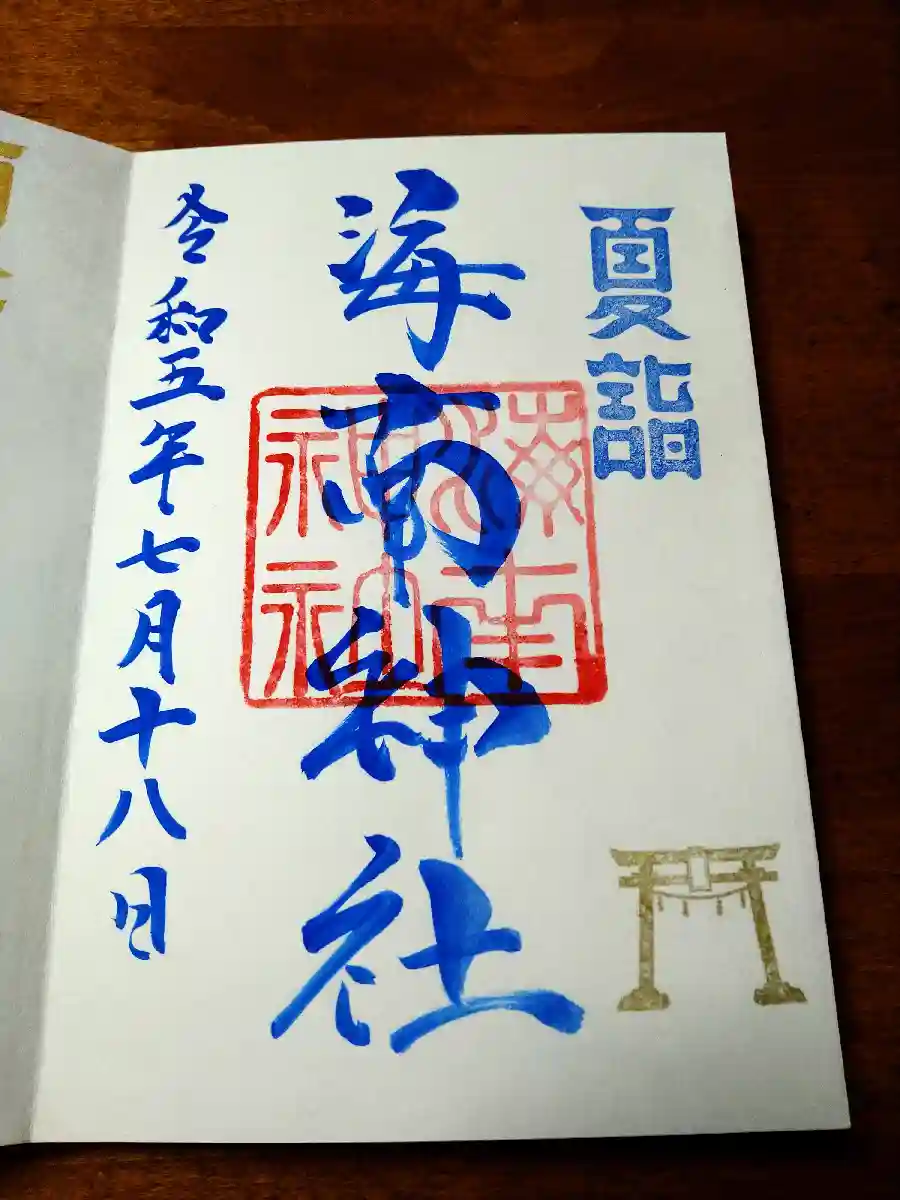 夏詣
海南神社
海南神社
令和五年七月十八日